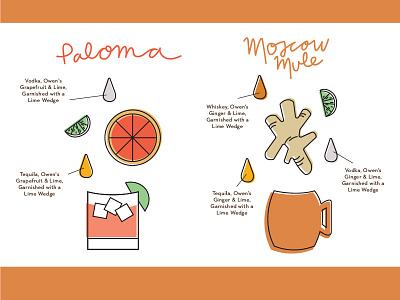 Paloma
Vodka, Owen's
Grapefruit & Lime,
Garnished with a
Lime Wedge
Tequila, Owen's
Grapefruit & Lime,
Garnished with a
Lime Wedge
Moscow
Mule
Whiskey, Owen's
Ginger & Lime,
Garnished with a
Lime Wedge
Vodka, Owen's
Ginger & Lime,
Garnished with a
Lime Wedge
Tequila, Owen's
Ginger & Lime,
Garnished with a
Lime Wedge